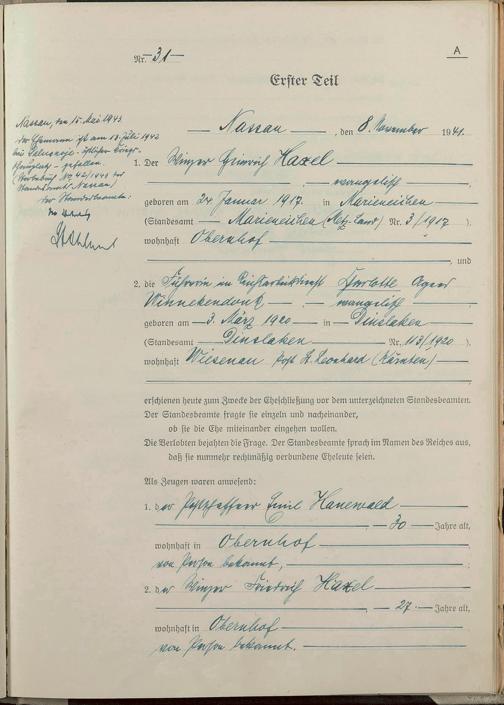 Nr. 31
A
Erster Teil
Nassau, den 8. November 1941.
1. Der Winzer Heinrich Haxel
evangelisch
geboren am 24. Januar 1917 in Marieneichen
(Standesamt Marieneichen Nr. 3/1917).
wohnhaft Obernhof
, und
2. die Führerin im Charlotte Agnes
Winnekendonk evangelisch
geboren am 3. März 1920 in Dinslaken
(Standesamt Dinslaken Nr. 113/1920)
wohnhaft Wiesenau Post St. Leonhard (Kärnten)
erschienen heute zum Zwecke der Eheschließung vor dem unterzeichneten Standesbeamten.
Der Standesbeamte fragte sie einzeln und nacheinander,
ob sie die Ehe miteinander eingehen wollen.
Die Verlobten bejahten die Frage. Der Standesbeamte sprach im Namen des Reiches aus,
daß sie nunmehr rechtmäßig verbundene Eheleute seien.
Als Zeugen waren anwesend:
1. der Emil Hanewald
30 Jahre alt,
wohnhaft in Obernhof
von Person bekannt,
2. der Winzer Friedrich Haxel
27 Jahre alt,
wohnhaft in Obernhof
von Person bekannt.
Nassau, den 15. Mai 1943
Der Ehemann ist am Juli 1942
gefallen.
Standesamt Nassau)
Der Standesbeamte: